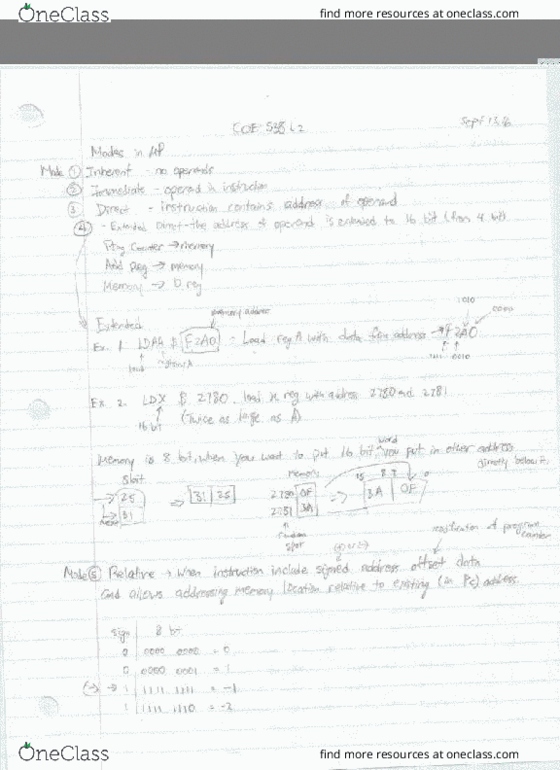 OneClass find more resources at oneclass.com
COE 538 L2 Sept 13
Modes in
Mode ① Inherent - no operands
② Immediate - operand in instruction
③ Direct - instruction contains address of operand
④ - Extended Direct - the address of operand is extended to 16 bit (from 4 bit)
Counter → memory
Add Reg → memory
Memory → D. reg
Extended
memory address
1010
0000
Ex. 1 LDAA $ F2A0 = Load reg A with data from address → F2A0
load
1111 0010
Ex 2. LDX $ 2780. load x reg with address 2780 and 2781
16 bit (Twice as large as A)
Memory is 8 bit, when you want to put 16 bit word, you put in other address
directly below it.
8 bit
25
31
⇒ 31 25
memory
2780 0F
2781 3A
random
spot
⇒
15 8 7 0
3A 0F
modification of program
counter
Mode ⑤ Relative → When instruction include signed address offset data
and allows addressing memory location relative to existing (in PC) address.
sign 8 bit
0 0000 0000 = 0
0 0000 0001 = 1
(-) → 1 1111 1111 = -1
1 1111 1110 = -2
OneClass find more resources at oneclass.com